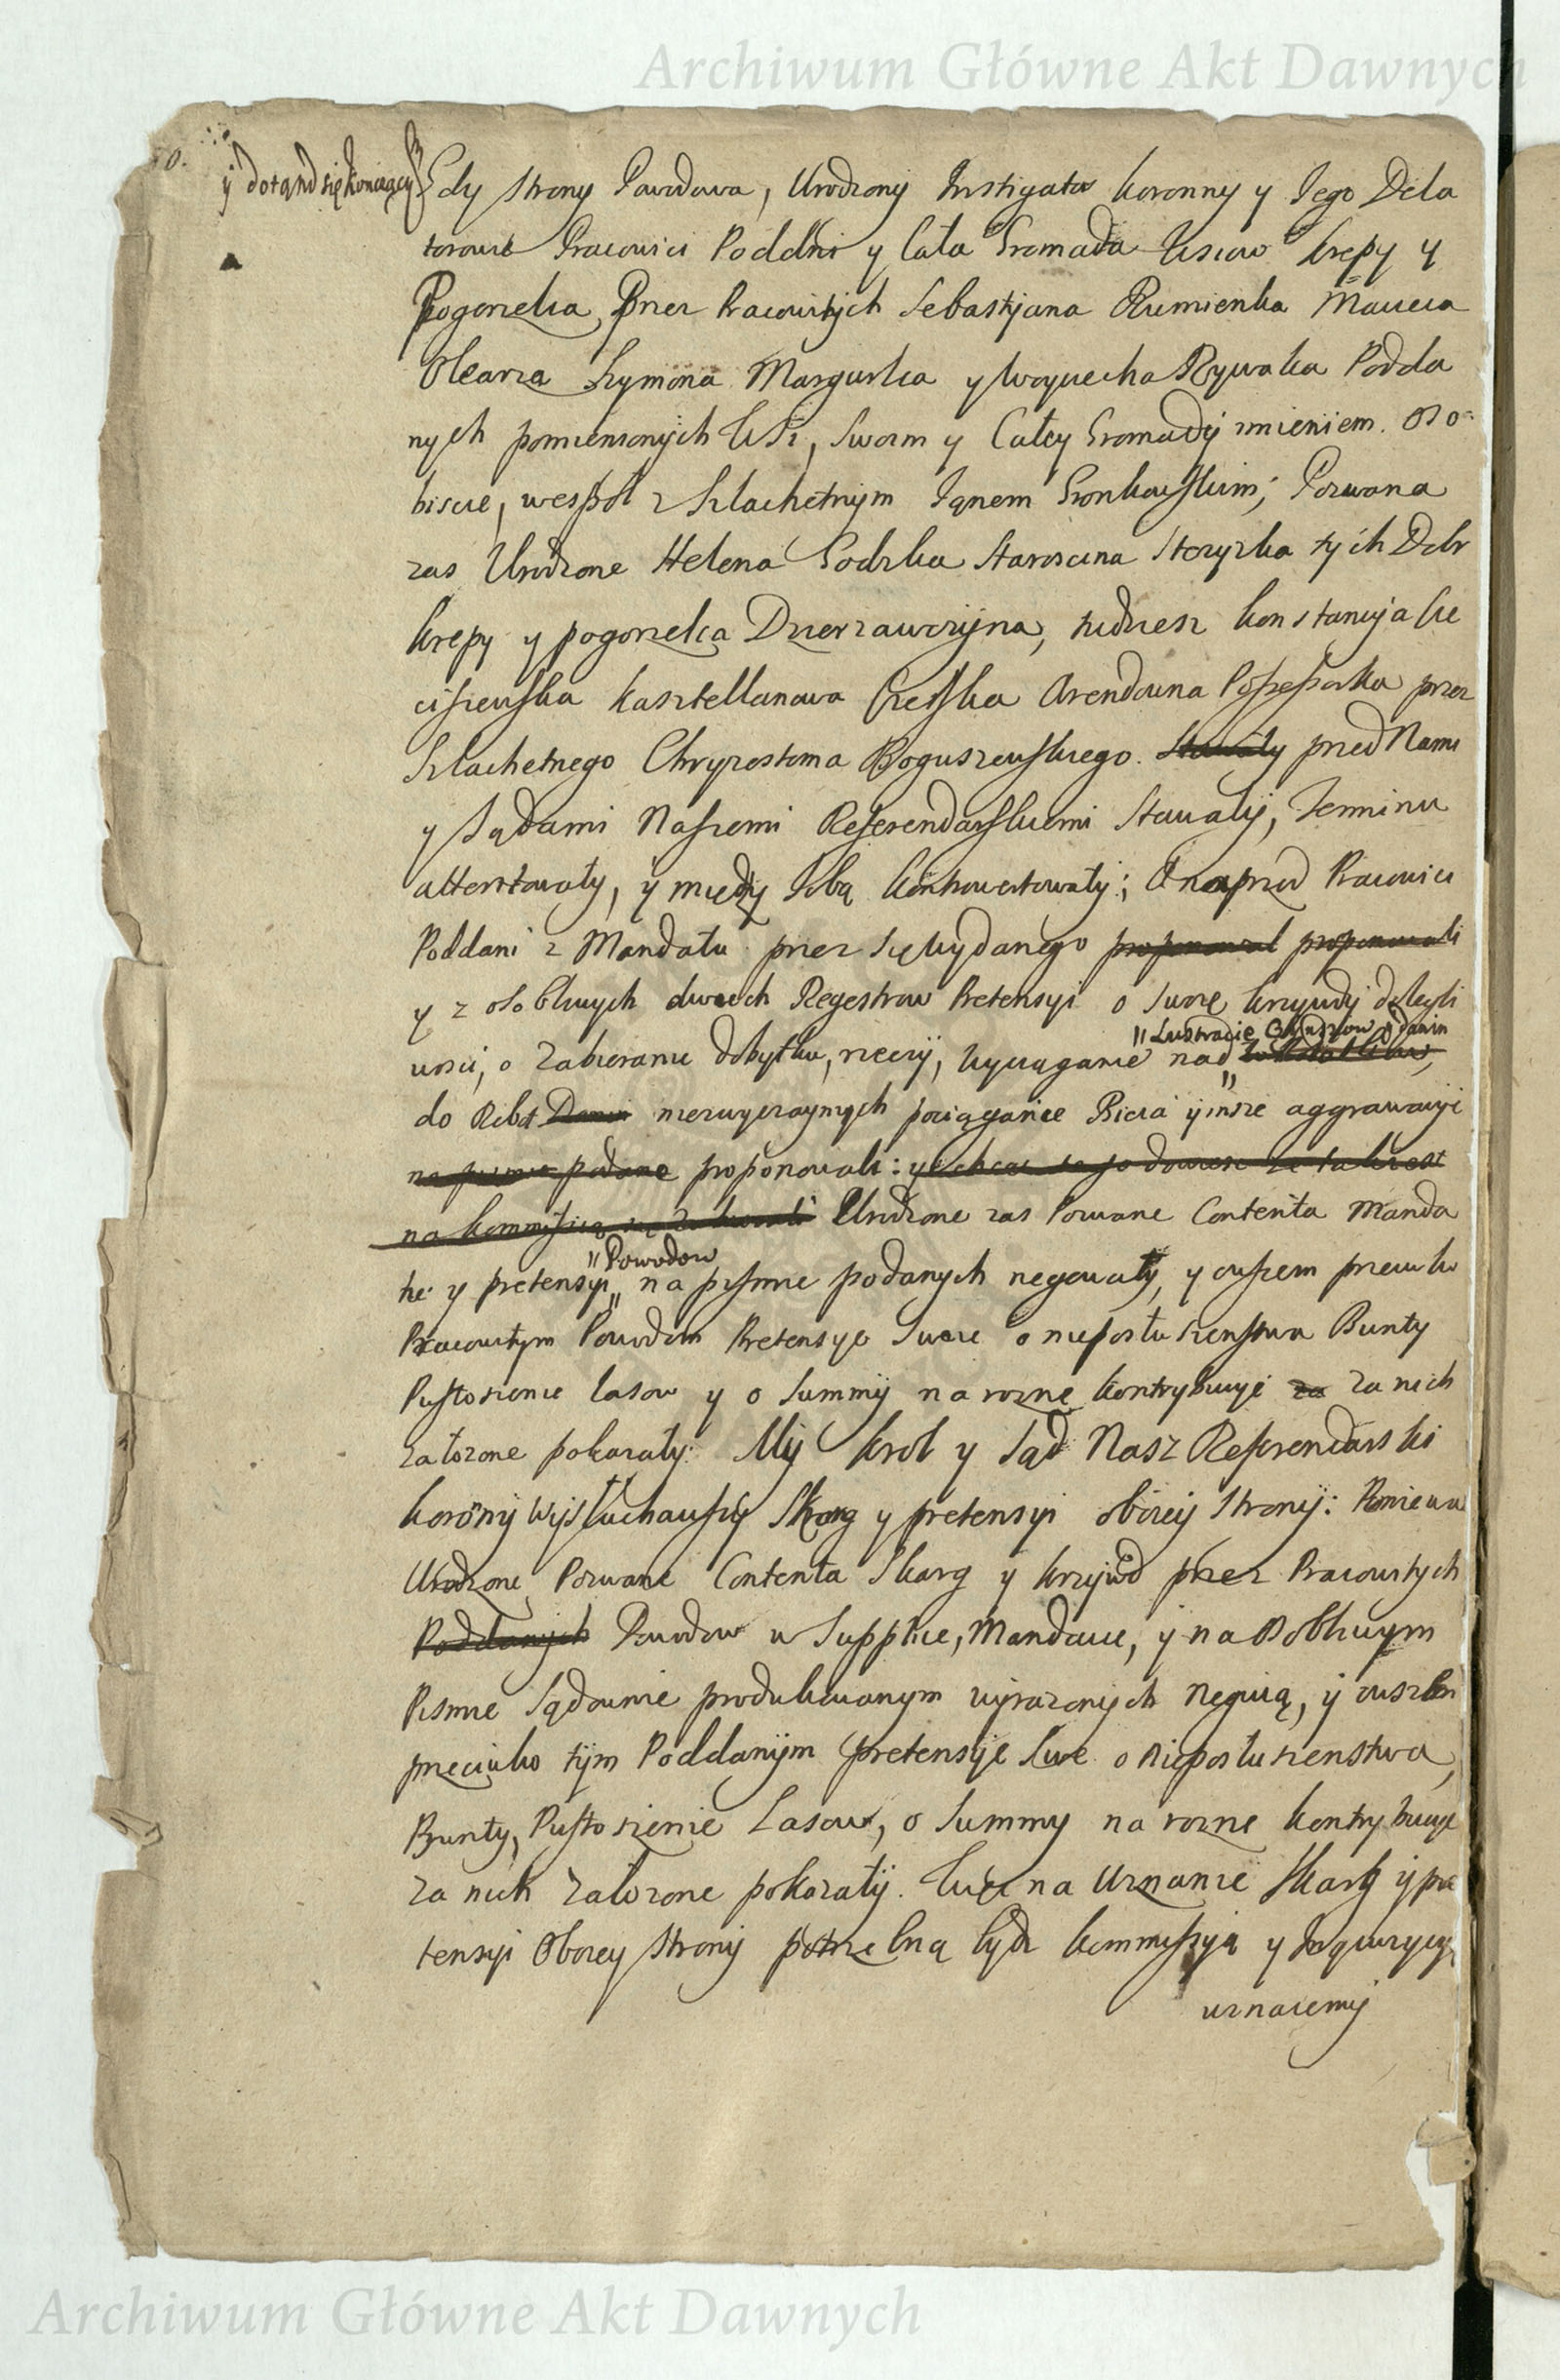 Archiwum Główne Akt Dawnych
y dotąnd się koniecący
Gdy Strony Powodowa, Urodzony Instigator koronny y Jego Dela
torowie Pracowici Poddni y Cała Gromada Wsiow krępy y
Pogorzelca, Przez Pracowitych Sebastyana Rumienka Macieia
Olearza Szymona Margurka y Woyciecha Rywaka Podda
nych pomienionych Wsi, Swoim y Całey Gromady imieniem. Oso-
biscie, wespoł z Szlachetnym Janem Gronkowskim; Pozwana
zas Urodzone Helena Godzka Staroscina Stezyzka tych Dobr
krepy y pogorzelca Dzierzawczyna, tudziesz konstancya Sie
ciszewska kasztellanowa Arendowna Possessorka przez
Szlachetnego Chryzostoma Boguszewskiego. Stawały przed Nami
y Sądami Naszemi Referendarskiemi Stawały, Terminu
attentowały, y między Sobą kontrowertowały; A naprzod Pracowici
Poddani z Mandatu przez się wydanego proponowal proponowali
y z osobliwych dwoch Regestrow Pretensyi o Swoie krzywdy dolegli
"Lustracie Czynszow y danin
wosci, o Zabieranie dobytku, rzeczy, wyciąganie nad
do Robot Danin niezwyczaynych pociąganie Bicia y insze aggrawacye
na pismie podane proponowali: y
na kommissią się Urodzone zas Pozwane Contenta Manda
"Powodow
tu y pretensyi na pismie podanych negowały, y owszem przeciwko
Pracowitym Powodom Pretensye Swoie o nieposłuszenstwa Bunty
Pustoszenie lasow y o Summy na rozne kontrybucye za za nich
załozone pokazały: My krol y Sąd Nasz Referendarski
korony Wysłuchawszy Skarg y pretensyi oboiey Strony: Poniewa
Urodzone Pozwane Contenta Skarg y krzywd przez Pracowitych
Poddanych Powodow w Supplice, Mandacie, y na Osobliwym
Pismie Sądownie produkowanym wyrazonych Neguią, y owszem
przeciwko tym Poddanym pretensye Swe o Nieposłuszenstwa,
Bunty, Pustoszenie Lasow, o Summy na rozne kontrybucye
za nich Załozone pokazały. Więc na Uznanie Skarg y pre
tensyi Oboiey Strony potrzebną bydz kommissyią y Inquizycyą
uznaiemy
Archiwum Główne Akt Dawnych